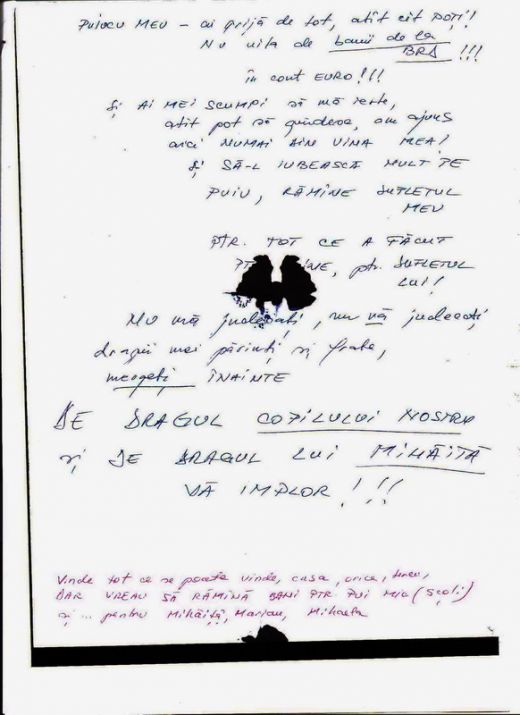 PUIUCU MEU – ai grijă de tot, atît cît POȚI!
Nu uita de banii de la
BRD !!!
în cont EURO!!!
Și AI MEI SCUMPI să mă ierte,
atît pot să gîndesc, am ajuns
aici NUMAI DIN VINA MEA!
Și SĂ-L IUBEASCĂ MULT PE
PUIU, RĂMÎNE SUFLETUL
MEU
PTR. TOT CE A FĂCUT
ptr. SUFLETUL
LUI!
NU mă judecați, nu vă judecați
dragii mei părinți și frate,
mergeți ÎNAINTE
DE DRAGUL COPILULUI NOSTRU
și DE DRAGUL LUI MIHĂIȚĂ
VĂ IMPLOR !!!
Vinde tot ce se poate vinde, casa, orice,
DAR VREAU SĂ RĂMÎNĂ BANI PTR. PUI MIC (Școli)
și ... pentru Mihăiță, Marian, Mihaela